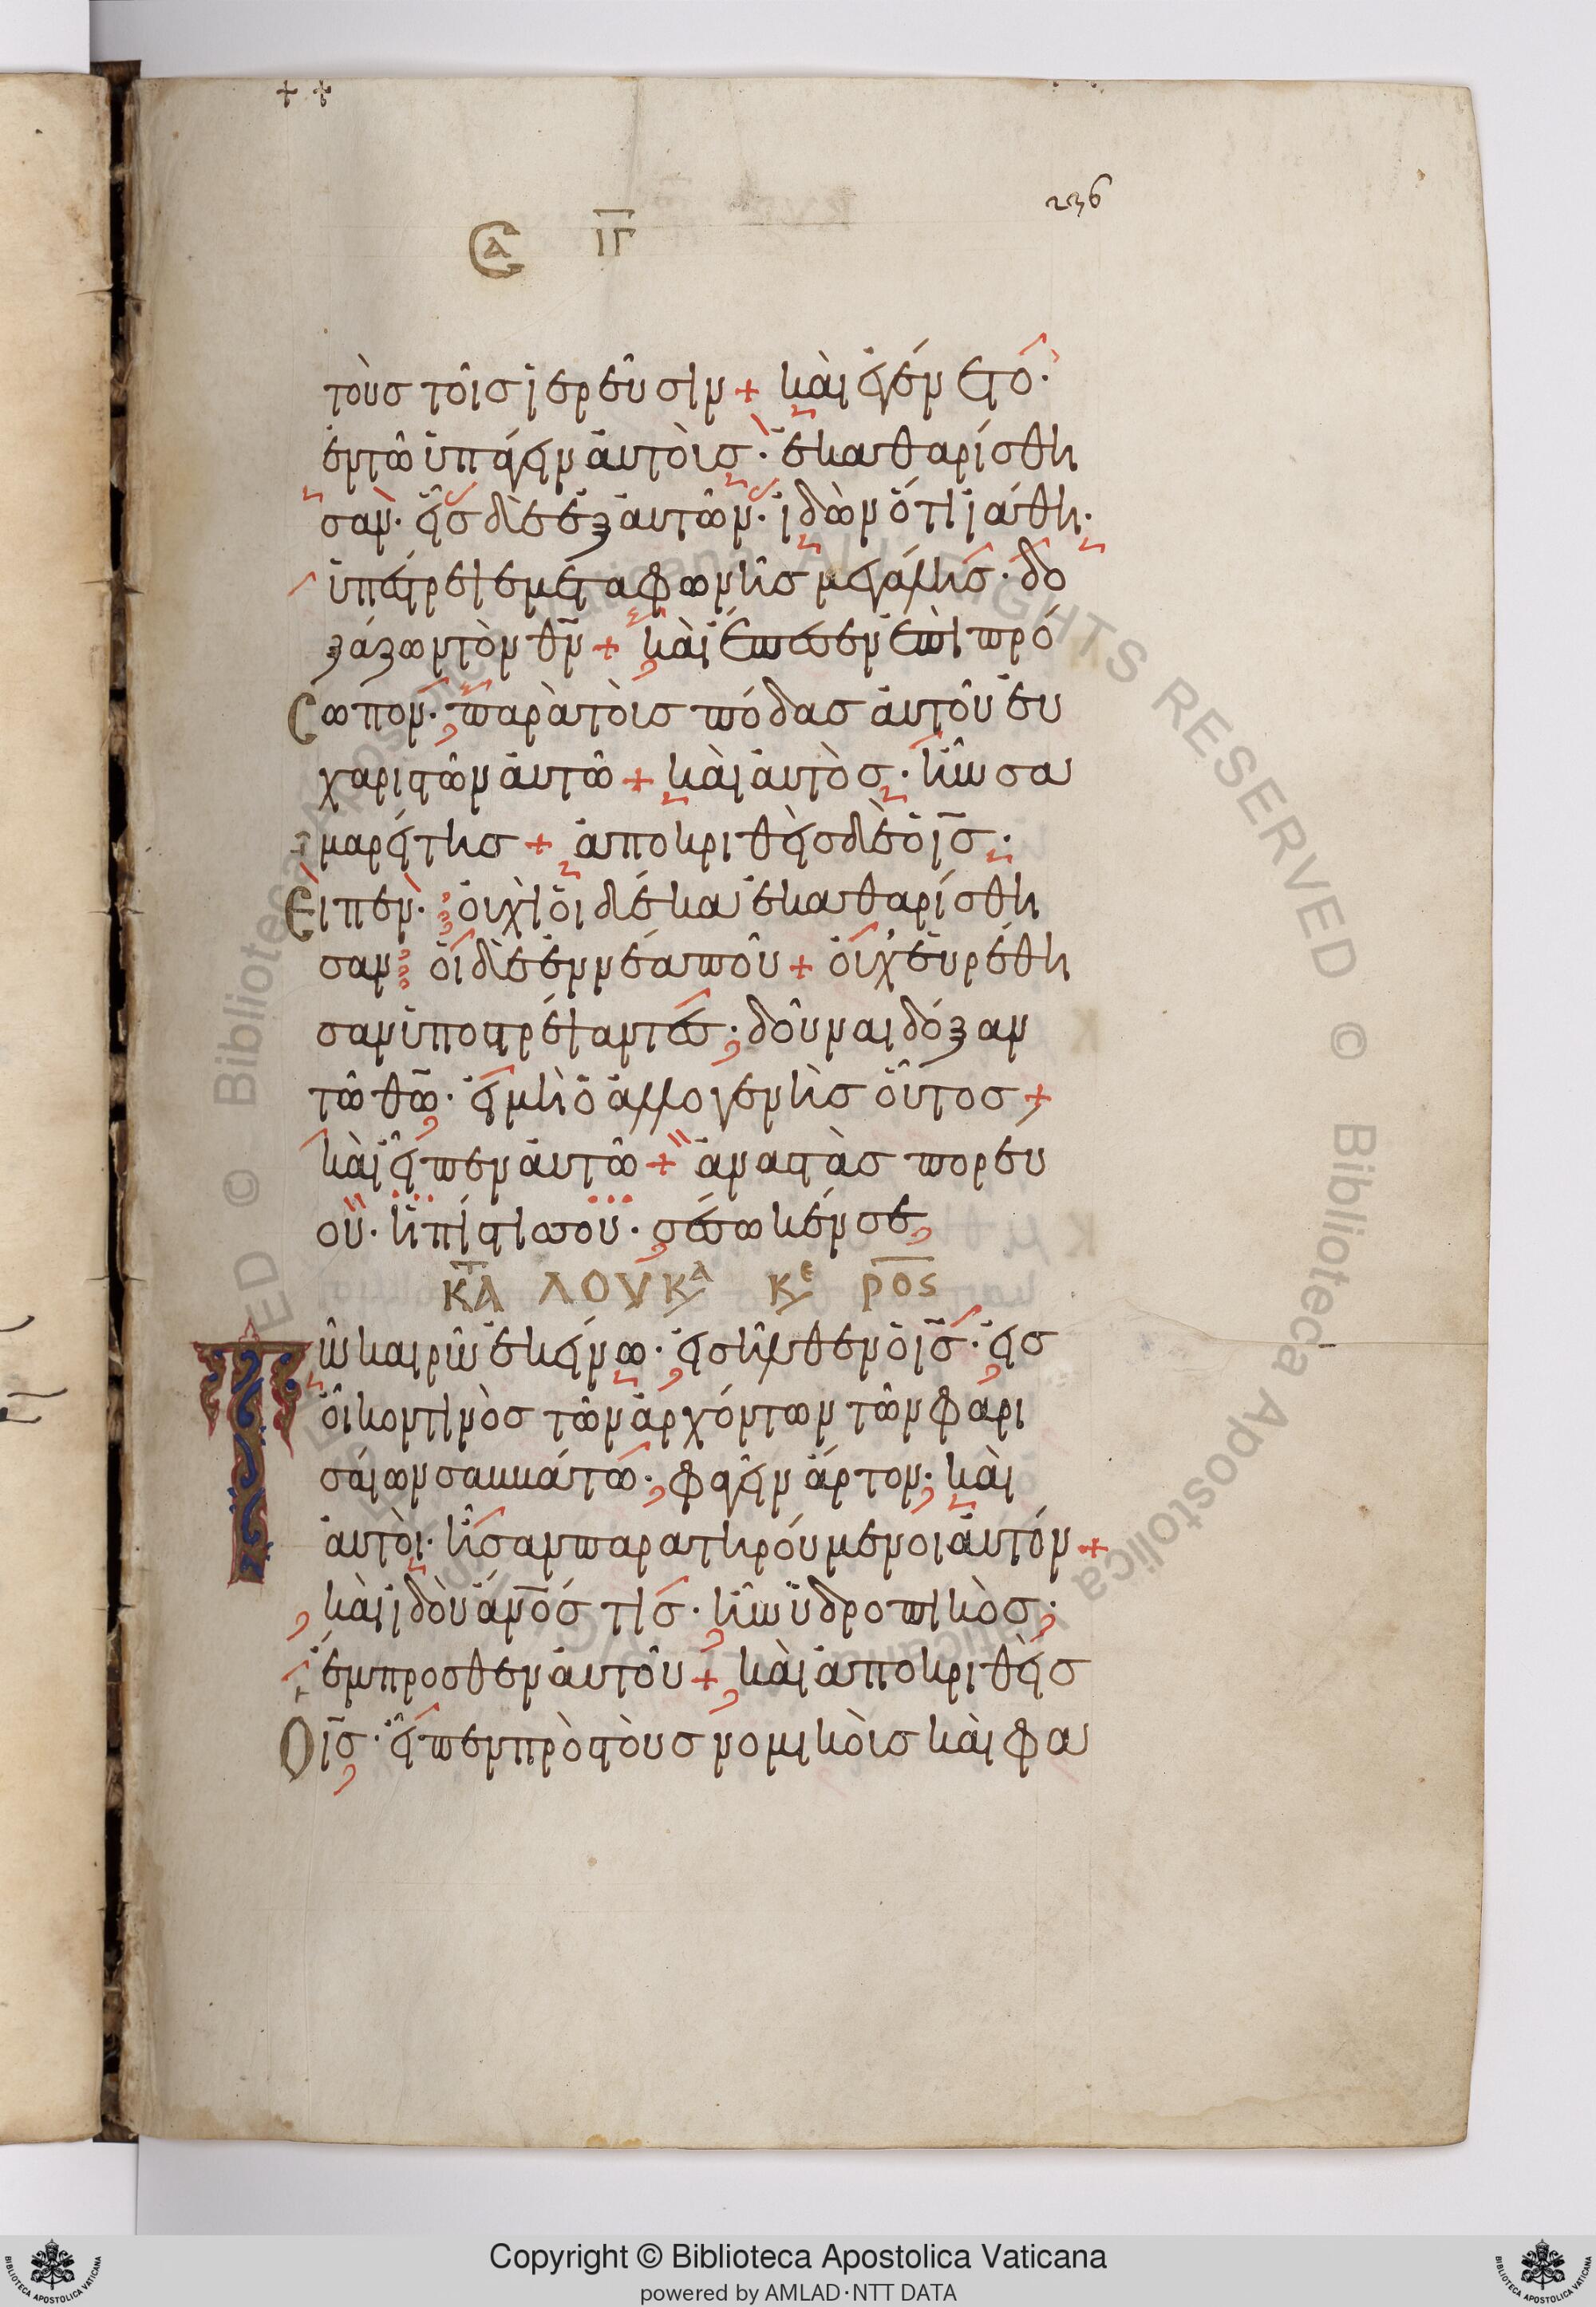 236
Σα ΙΓ
τοὺσ τοῖσ ἱερεῦσιν + καὶ ἐγένετο·
ἐν τῶ ὑπάγειν αὐτοὺσ· ἐκαθαρίσθη
σαν· εἷσ δὲ ἐξ αὐτῶν· ἰδὼν ὅτι ἰάθη·
ὑπέστρεψε μετὰ φωνῆσ μεγάλησ· δο
ξάζων τὸν θν + καὶ ἔπεσεν ἐπὶ πρό
σωπον· παρὰ τοὺσ πόδασ αὐτοῦ εὐ
χαριστῶν αὐτῶ + καὶ αὐτὸσ· ἦν σα
μαρείτησ + ἀποκριθεὶσ δὲ ὁ ισ·
εἶπεν· οὐχὶ οἱ δέκα ἐκαθαρίσθη
σαν οἱ δὲ ἐννέα ποῦ + οὐχ εὑρέθη
σαν ὑποστρέψαντεσ· δοῦναι δόξαν
τῶ θω· εἰ μὴ ὁ ἀλλογενὴσ οὗτοσ +
καὶ εἶπεν αὐτῶ + ἀναστὰσ πορεύ
ου· ἡ πίστισ σου· σέσωκέν σε
ΚΑΤ ΛΟΥΚΑ ΚΕ ΡΟϚ
Τῶ καιρῶ ἐκείνω· εἰσῆλθεν ὁ ισ· εἰσ
οἶκον τινὸσ τῶν ἀρχόντων τῶν φαρι
σαίων σαββάτω· φαγεῖν ἄρτον· καὶ
αὐτοὶ· ἦσαν παρατηρούμενοι αὐτόν +
καὶ ἰδοὺ ανοσ τισ· ἦν ὑδρωπικὸσ·
ἔμπροσθεν αὐτοῦ + καὶ ἀποκριθεὶσ
ὁ ισ· εἶπεν πρὸσ τοὺσ νομικοὺσ καὶ φα
Copyright © Biblioteca Apostolica Vaticana
powered by AMLAD·NTT DATA